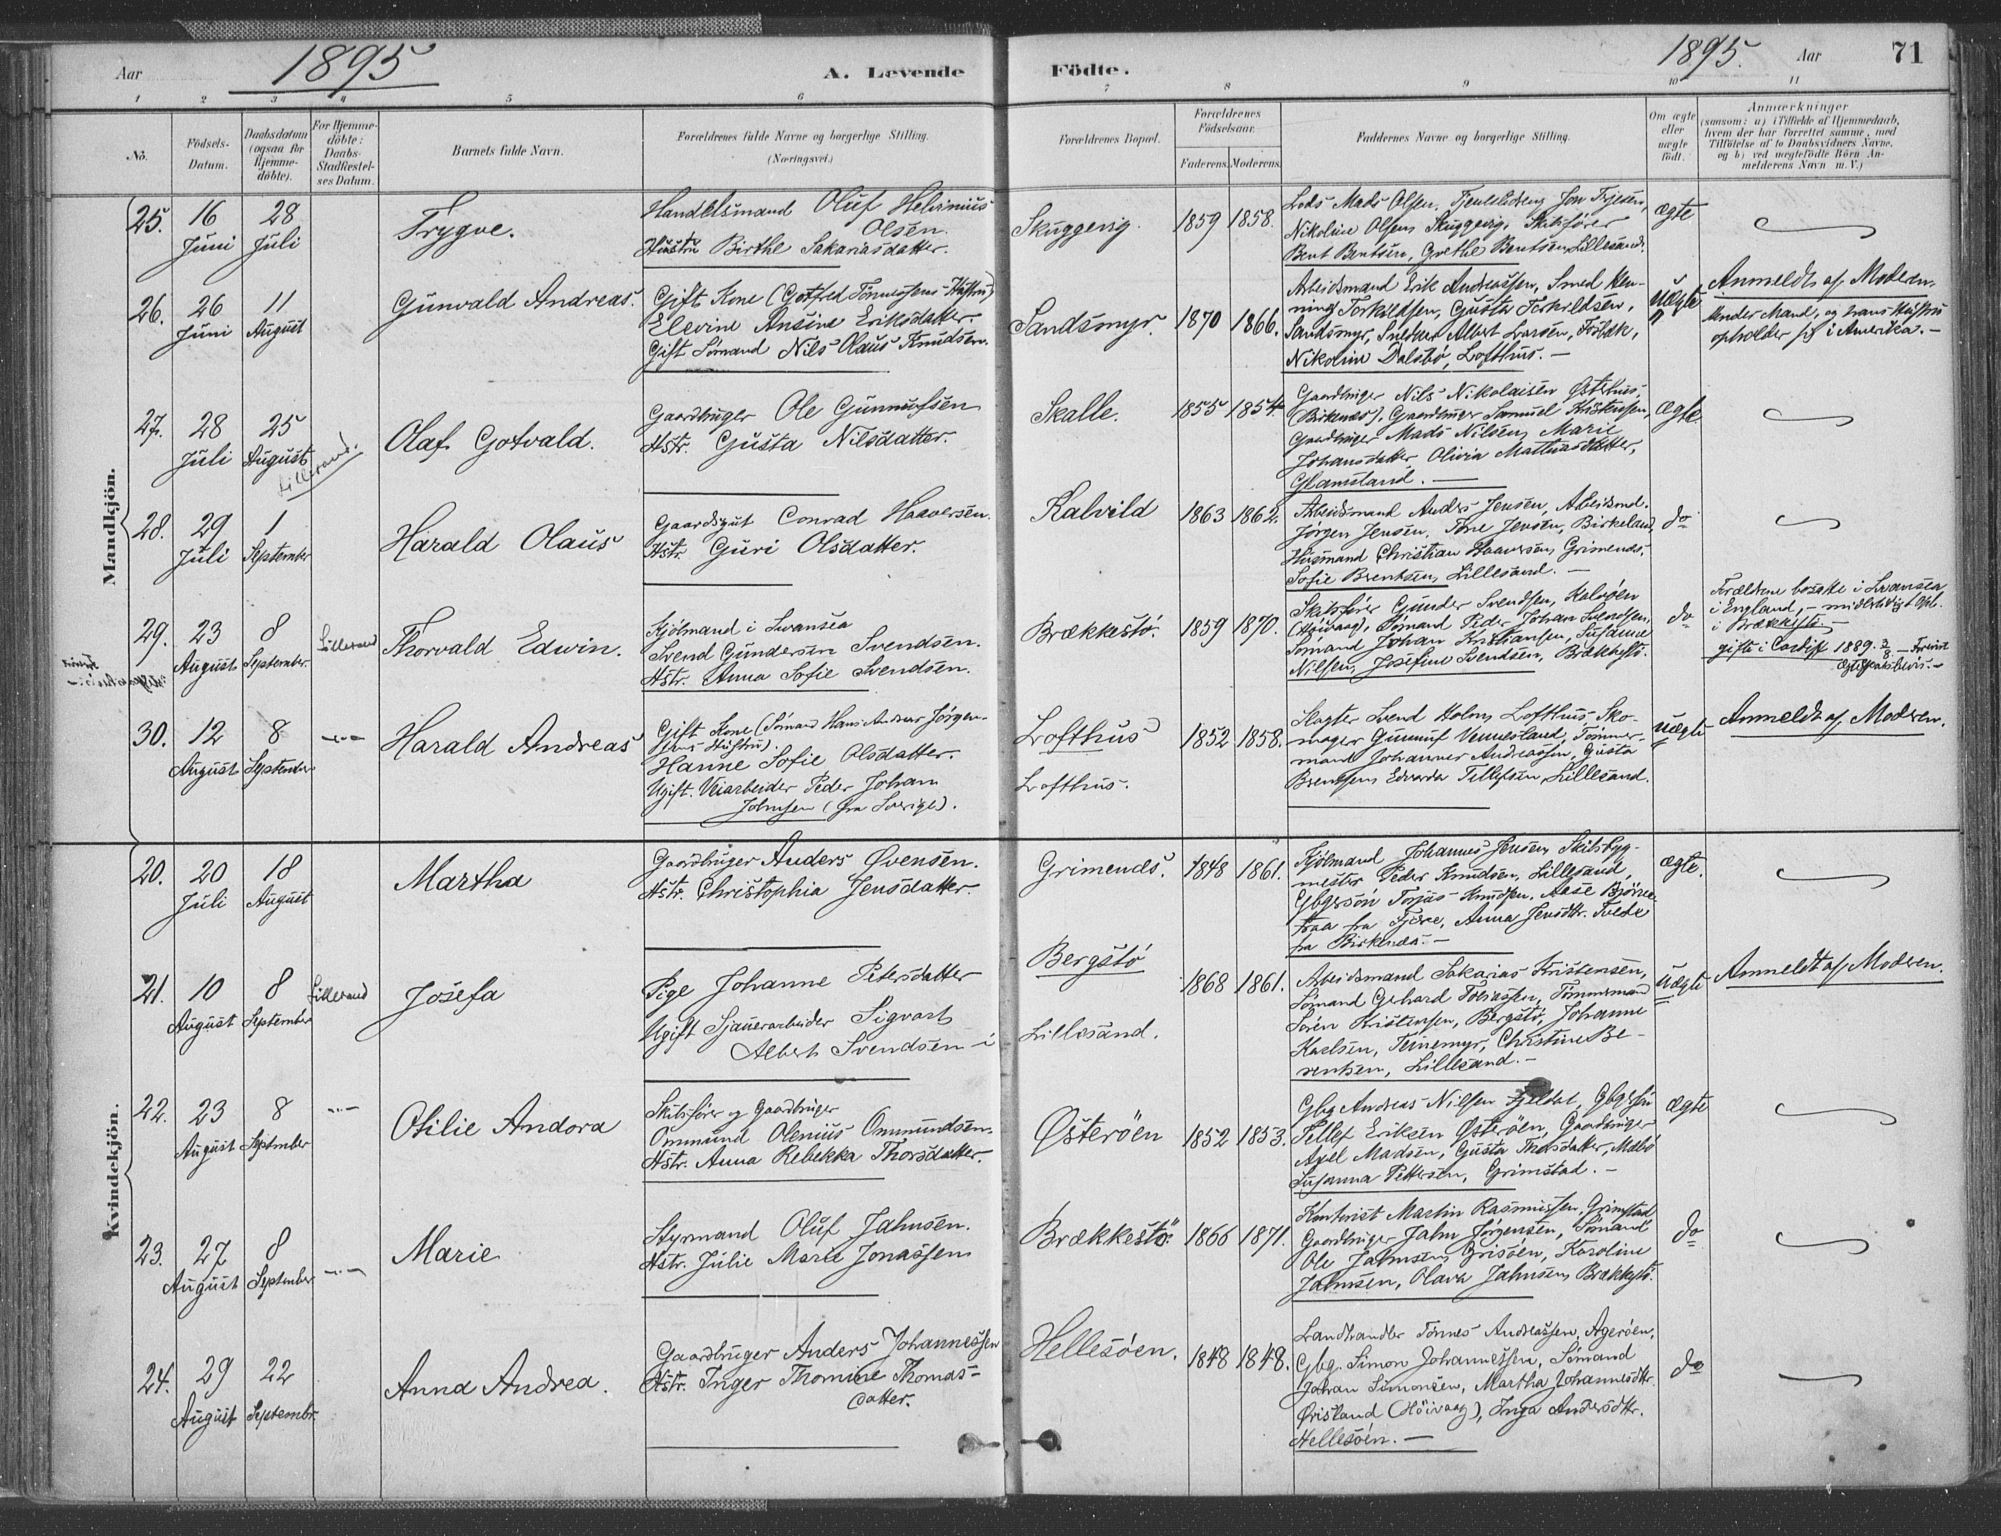 1895
1895.
71
Aar
A. Levende
Födte.
Aar
1 2 3 4 5 6 7 8 9 10 11
No.
Födsels-
Datum.
Daabsdatum
(ogsaa for
Hjemme-
döbte).
For Hjemme-
döbte:
Daabs-
Stadfæstel-
ses Datum.
Barnets fulde Navn.
Forældrenes fulde Navne og borgerlige Stilling.
(Næringsvei.)
Forældrenes Bopæl.
Forældrenes
Födselsaar.
Faderens. Moderens.
Faddernes Navne og borgerlige Stilling.
Om ægte
eller
uægte
födt.
Anmærkninger
(saasom: a) i Tilfælde af Hjemmedaab,
hvem der har forrettet samme, med
Tilföielse af to Daabsvidners Navne,
og b) ved uægtefödte Börn An-
melderens Navn m. V.)
Mandkjön.
25.
16
Juni
28
Juli
Trygve.
Handelsmand Oluf Helvinius
Olsen.
Hustru Birthe Sakariasdatter.
Skuggevig.
1859 1858.
Lods Mads Olsen,
Nikoline Olsen, Skuggevig, Skibsfører
Bent Bentsen, Grethe Bentsen, Lillesand.
Ægte
26.
26
Juni
11
August
Gunvald Andreas.
Gift Kone (Gotfred Tønnessens Hustru)
Elevine Ansine Eriksdatter.
Gift Sømand Nils Olaus Knudsen.
Sandsmyr.
1870 1866.
Arbeidsmand Erik Andreassen, Smed Hen-
ning Torkildsen, Gusta Terkildsen,
Sandsmyr, Snedker Albert Larsen,
Nikoline Dalsbø, Lofthus. —
Uægte
Anmeldt af Moderen.
Kender Mand, og hans Hustru
opholder sig i Amerika. —
27.
28
Juli
25
August
Lillesand.
Olaf Gotvald.
Gaardbruger Ole Gunnufsen
Hstr. Gusta Nilsdatter.
Skalle.
1855 1854.
Gaardbruger Nils Nikolaisen Østhus,
(Birkenæs), Gaardbruger Samuel Kristensen,
Gaardbruger Mads Nilsen, Marie
Johansdatter, Olivia Mathiasdatter,
Glamsland. —
Ægte.
28.
29
Juli
1
September
Harald Olaus
Gaardsgut Conrad Haaversen.
Hstr. Guri Olsdatter.
Kalvild
1863 1862.
Arbeidsmand Anders Jensen, Arbeidsmd.
Jørgen Jensen, Tone Jensen, Birkeland,
Husmand Christian Haaversen, Grimenes,
Sofie Berntsen, Lillesand. —
do
29.
23
August
8
September.
Lillesand
Thorvald Edwin.
Kjølmand i Swansea
Svend Gundersen Svendsen.
Hstr. Anna Sofie Svendsen.
Brækkestö.
1859 1870.
Skibsfører Gunder Svendsen, Kalvøen
(Høivaag), Sømand Peder Johan Svendsen,
Sømand Johan Kristiansen, Susanne
Nilsen, Josefine Svendsen, Brækkestö.
do
Forældrene bosatte i Swansea
i England, — midlertidigt Oph.
i Brækkestö. —
gifte i Cardiff 1889 3/8. —
30.
12
August
8
September
Harald Andreas
Gift Kone (Sømand Hans Andreas Jørgen-
sens Hustru).
Hanne Sofie Olsdatter.
Ugift. Veiarbeider Peder Johan
Johnsen (fra Sverige).
Lofthus
Lofthus.
1852 1858.
Slagter Svend Holm, Lofthus, Sko-
mager Gunnuf Vennesland, Tømmer-
mand Johannes Andreassen, Gusta
Berntsen, Edvarda Tellefsen, Lillesand.
Uægte
Anmeldt af Modren.
Kvindekjön.
20.
20
Juli
18
August
Martha
Gaardbruger Anders Øvensen.
Hstr. Christophia Jensdatter.
Grimenes.
1848 1861.
Kjølmand Johannes Jensen, Skibsbyg-
mester Peder Knudsen, Lillesand,
Gbgersøn Torjus Knudsen, Aase
fra Fjære, Anna Jensdtr. Tvede
fra Birkenæs. —
Ægte.
21.
10
August
8
September
Lillesand
Josefa
Pige Johanne Petersdatter
Ugift Sjauerarbeider Sigvart
Albert Svendsen i
Bergstö
Lillesand.
1868 1861.
Arbeidsmand Sakarias Kristensen,
Sømand Gerhard Tobiassen, Tømmermand
Søren Kristensen, Bergstö, Johanne
Karlsen, Teinemyr, Christine Be-
rentsen, Lillesand. —
Uægte
Anmeldt af Modren.
22.
23
August
8
September
Otilie Andora
Skibsfører og Gaardbruger
Ommund Olenius Ommundsen.
Hstr. Anna Rebekka Thorsdatter.
Østeröen
1852 1853.
Gbg Andreas Nilsen Fjeldal, Gbgersøn
Tellef Eriksen Østerøen, Gaardbruger
Axel Madsen, Gusta Thorsdatter, Mælbø
Susanna Pettersen, Grimstad. —
Ægte
23.
27
August
8
September
Marie
Styrmand Oluf Jahnsen.
Hstr. Julie Marie Jonassen
Brækkestö.
1866 1871.
Kontorist Martin Rasmussen, Grimstad
Gaardbruger Jahn Jørgensen, Sømand
Ole Jahnsen, Grisøen, Karoline
Jahnsen, Olava Jahnsen, Brækkestö.
do
24.
29
August
22
Septembr.
Anna Andrea.
Gaardbruger Anders Johannessen
Hstr. Inger Thomine Thomas-
datter.
Hellesöen.
1848 1848.
Landhandler Tönnes Andreassen, Agerøen,
Gbg. Simon Johannessen, Sømand
Johan Simonsen, Martha Johannesdtr.
Ørisland (Höivaag), Inga Andersdtr.
Hellesöen. —
do